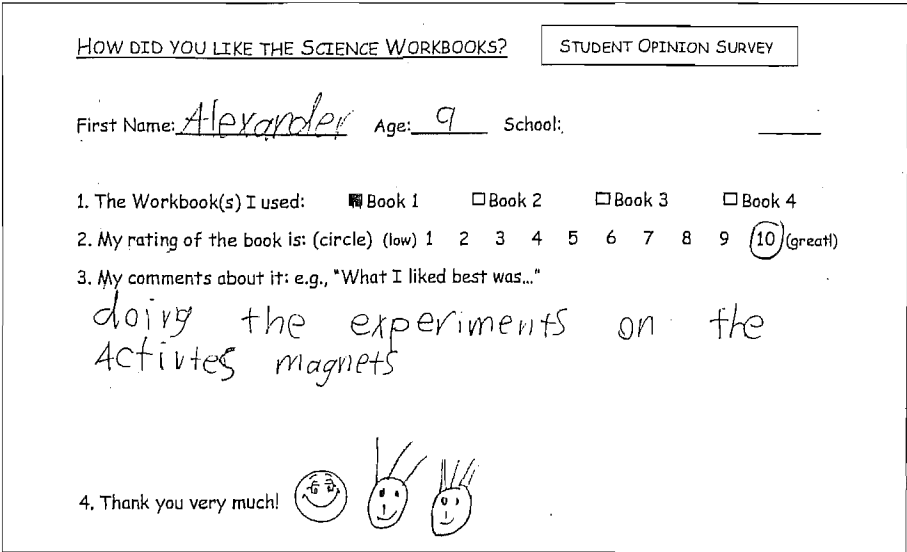 HOW DID YOU LIKE THE SCIENCE WORKBOOKS? STUDENT OPINION SURVEY
First Name: Alexander Age: 9 School:
1. The Workbook(s) I used: Book 1 Book 2 Book 3 Book 4
2. My rating of the book is: (circle) (low) 1 2 3 4 5 6 7 8 9 10 (great!)
3. My comments about it: e.g., "What I liked best was..."
doing the experiments on the
Activtes magnets
4. Thank you very much!